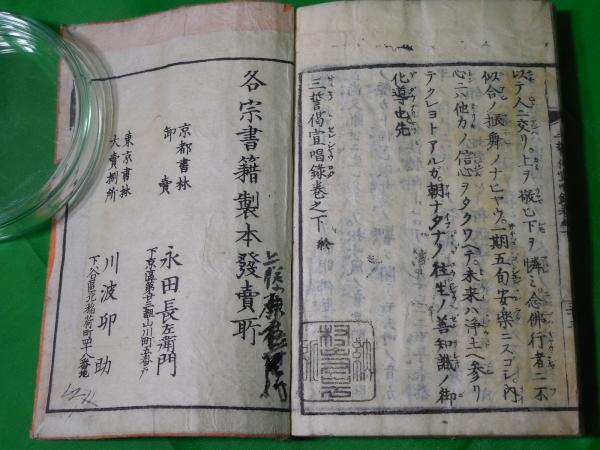 以テ人ニ交リ。上ヲ敬ヒ下ヲ憐ミ念佛行者ニ不
似合ノ振舞ノナヒヤウ。一期五旬安楽ニスコシ。内
心ニハ他力ノ信心ヲタクワヘテ。未来ハ浄土ヘ参リ
テクレヨトアルカ。朝ナ夕ナノ往生ノ善知識ノ御
化導也先
三誓偈宣唱録巻之下 終
各宗書籍製本發賣所
京都書林
卸賣
永田長左衛門
東京書林
大賣捌所
川波卯助
下谷區北稲荷町四十八番地